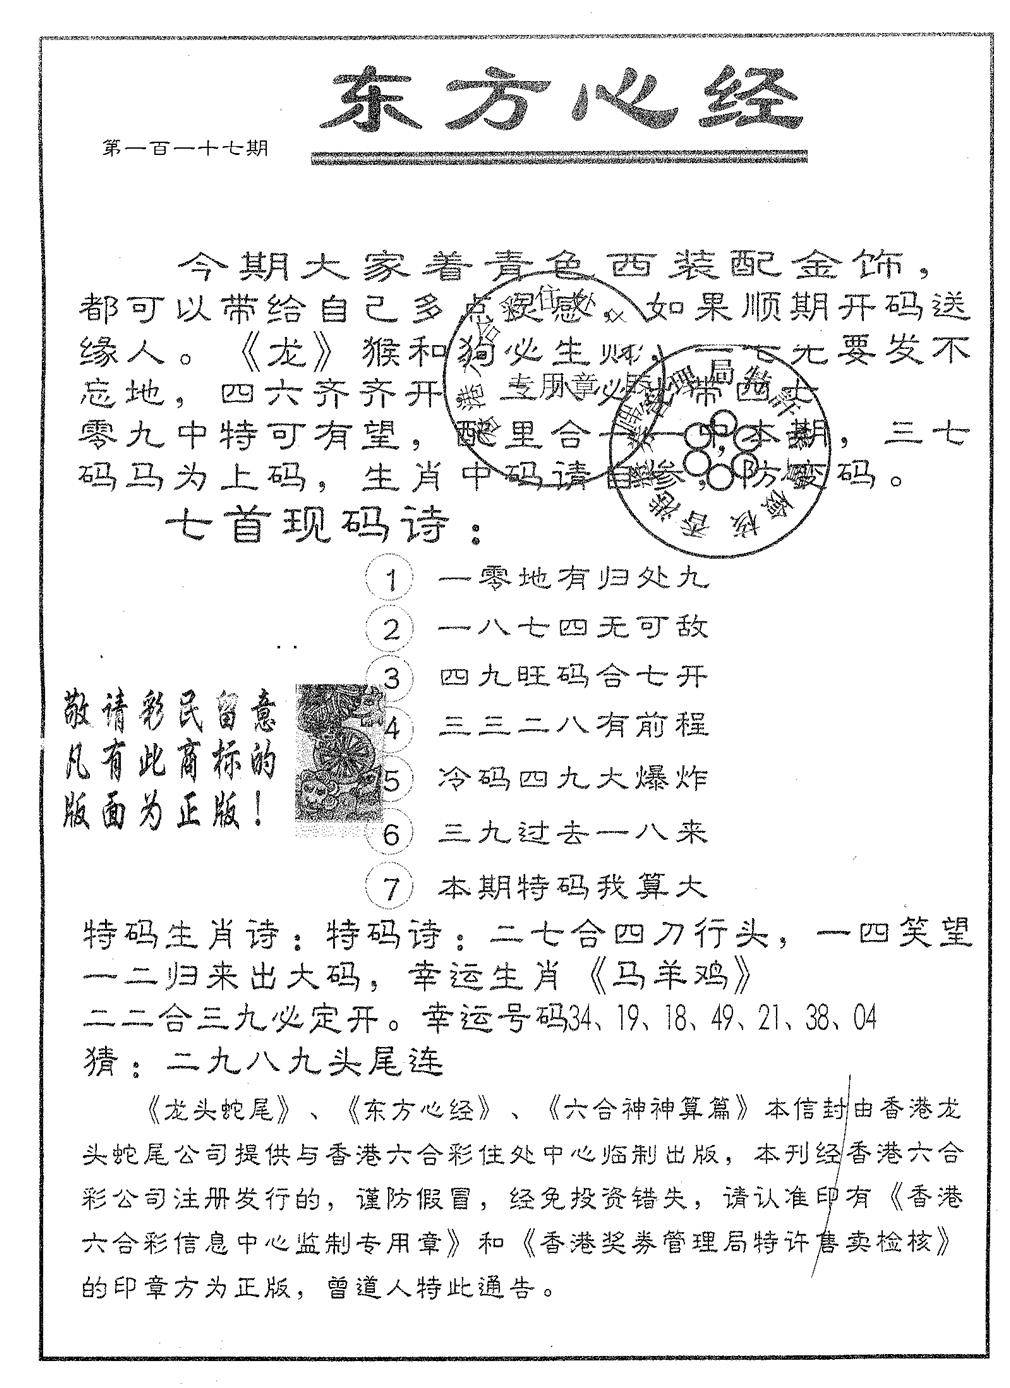 东方心经
第一百一十七期
今期大家着青色西装配金饰，
都可以带给自己多点灵感。如果顺期开码送
缘人。《龙》猴和狗必生财，一七先要发不
忘地，四六齐齐开 必 带四七
零九中特可有望， 里合一一中本期，三七
码马为上码，生肖中码请自参，防变码。
七首现码诗：
1 一零地有归处九
2 一八七四无可敌
3 四九旺码合七开
4 三三二八有前程
5 冷码四九大爆炸
6 三九过去一八来
7 本期特码我算大
敬请彩民留意
凡有此商标的
版面为正版！
特码生肖诗：特码诗：二七合四刀行头，一四笑望
一二归来出大码，幸运生肖《马羊鸡》
二二合三九必定开。幸运号码34、19、18、49、21、38、04
猜：二九八九头尾连
《龙头蛇尾》、《东方心经》、《六合神神算篇》本信封由香港龙
头蛇尾公司提供与香港六合彩住处中心临制出版，本刊经香港六合
彩公司注册发行的，谨防假冒，经免投资错失，请认准印有《香港
六合彩信息中心监制专用章》和《香港奖券管理局特许售卖检核》
的印章方为正版，曾道人特此通告。
专用章